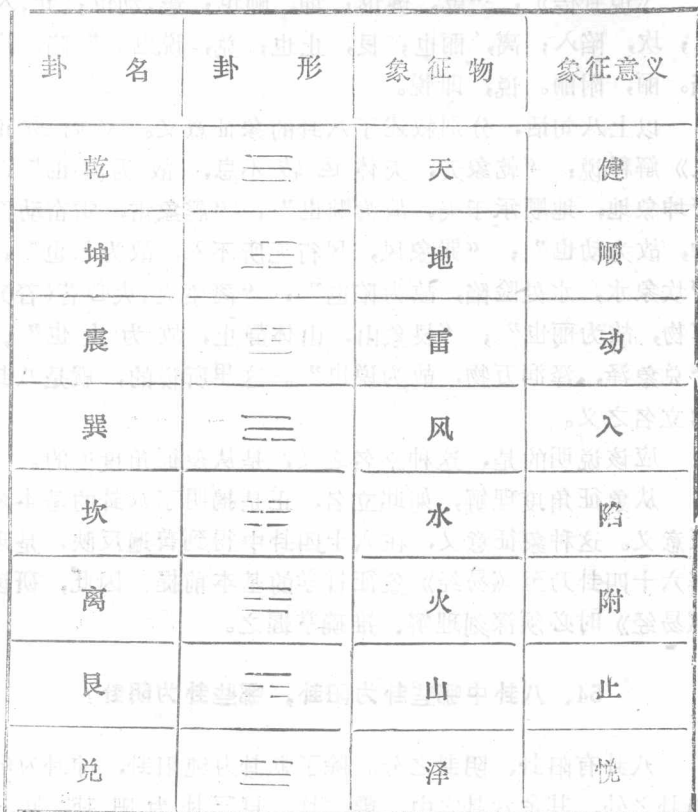 卦名 卦形 象征物 象征意义
乾 ☰ 天 健
坤 ☷ 地 顺
震 ☳ 雷 动
巽 ☴ 风 入
坎 ☵ 水 陷
离 ☲ 火 附
艮 ☶ 山 止
兑 ☱ 泽 悦